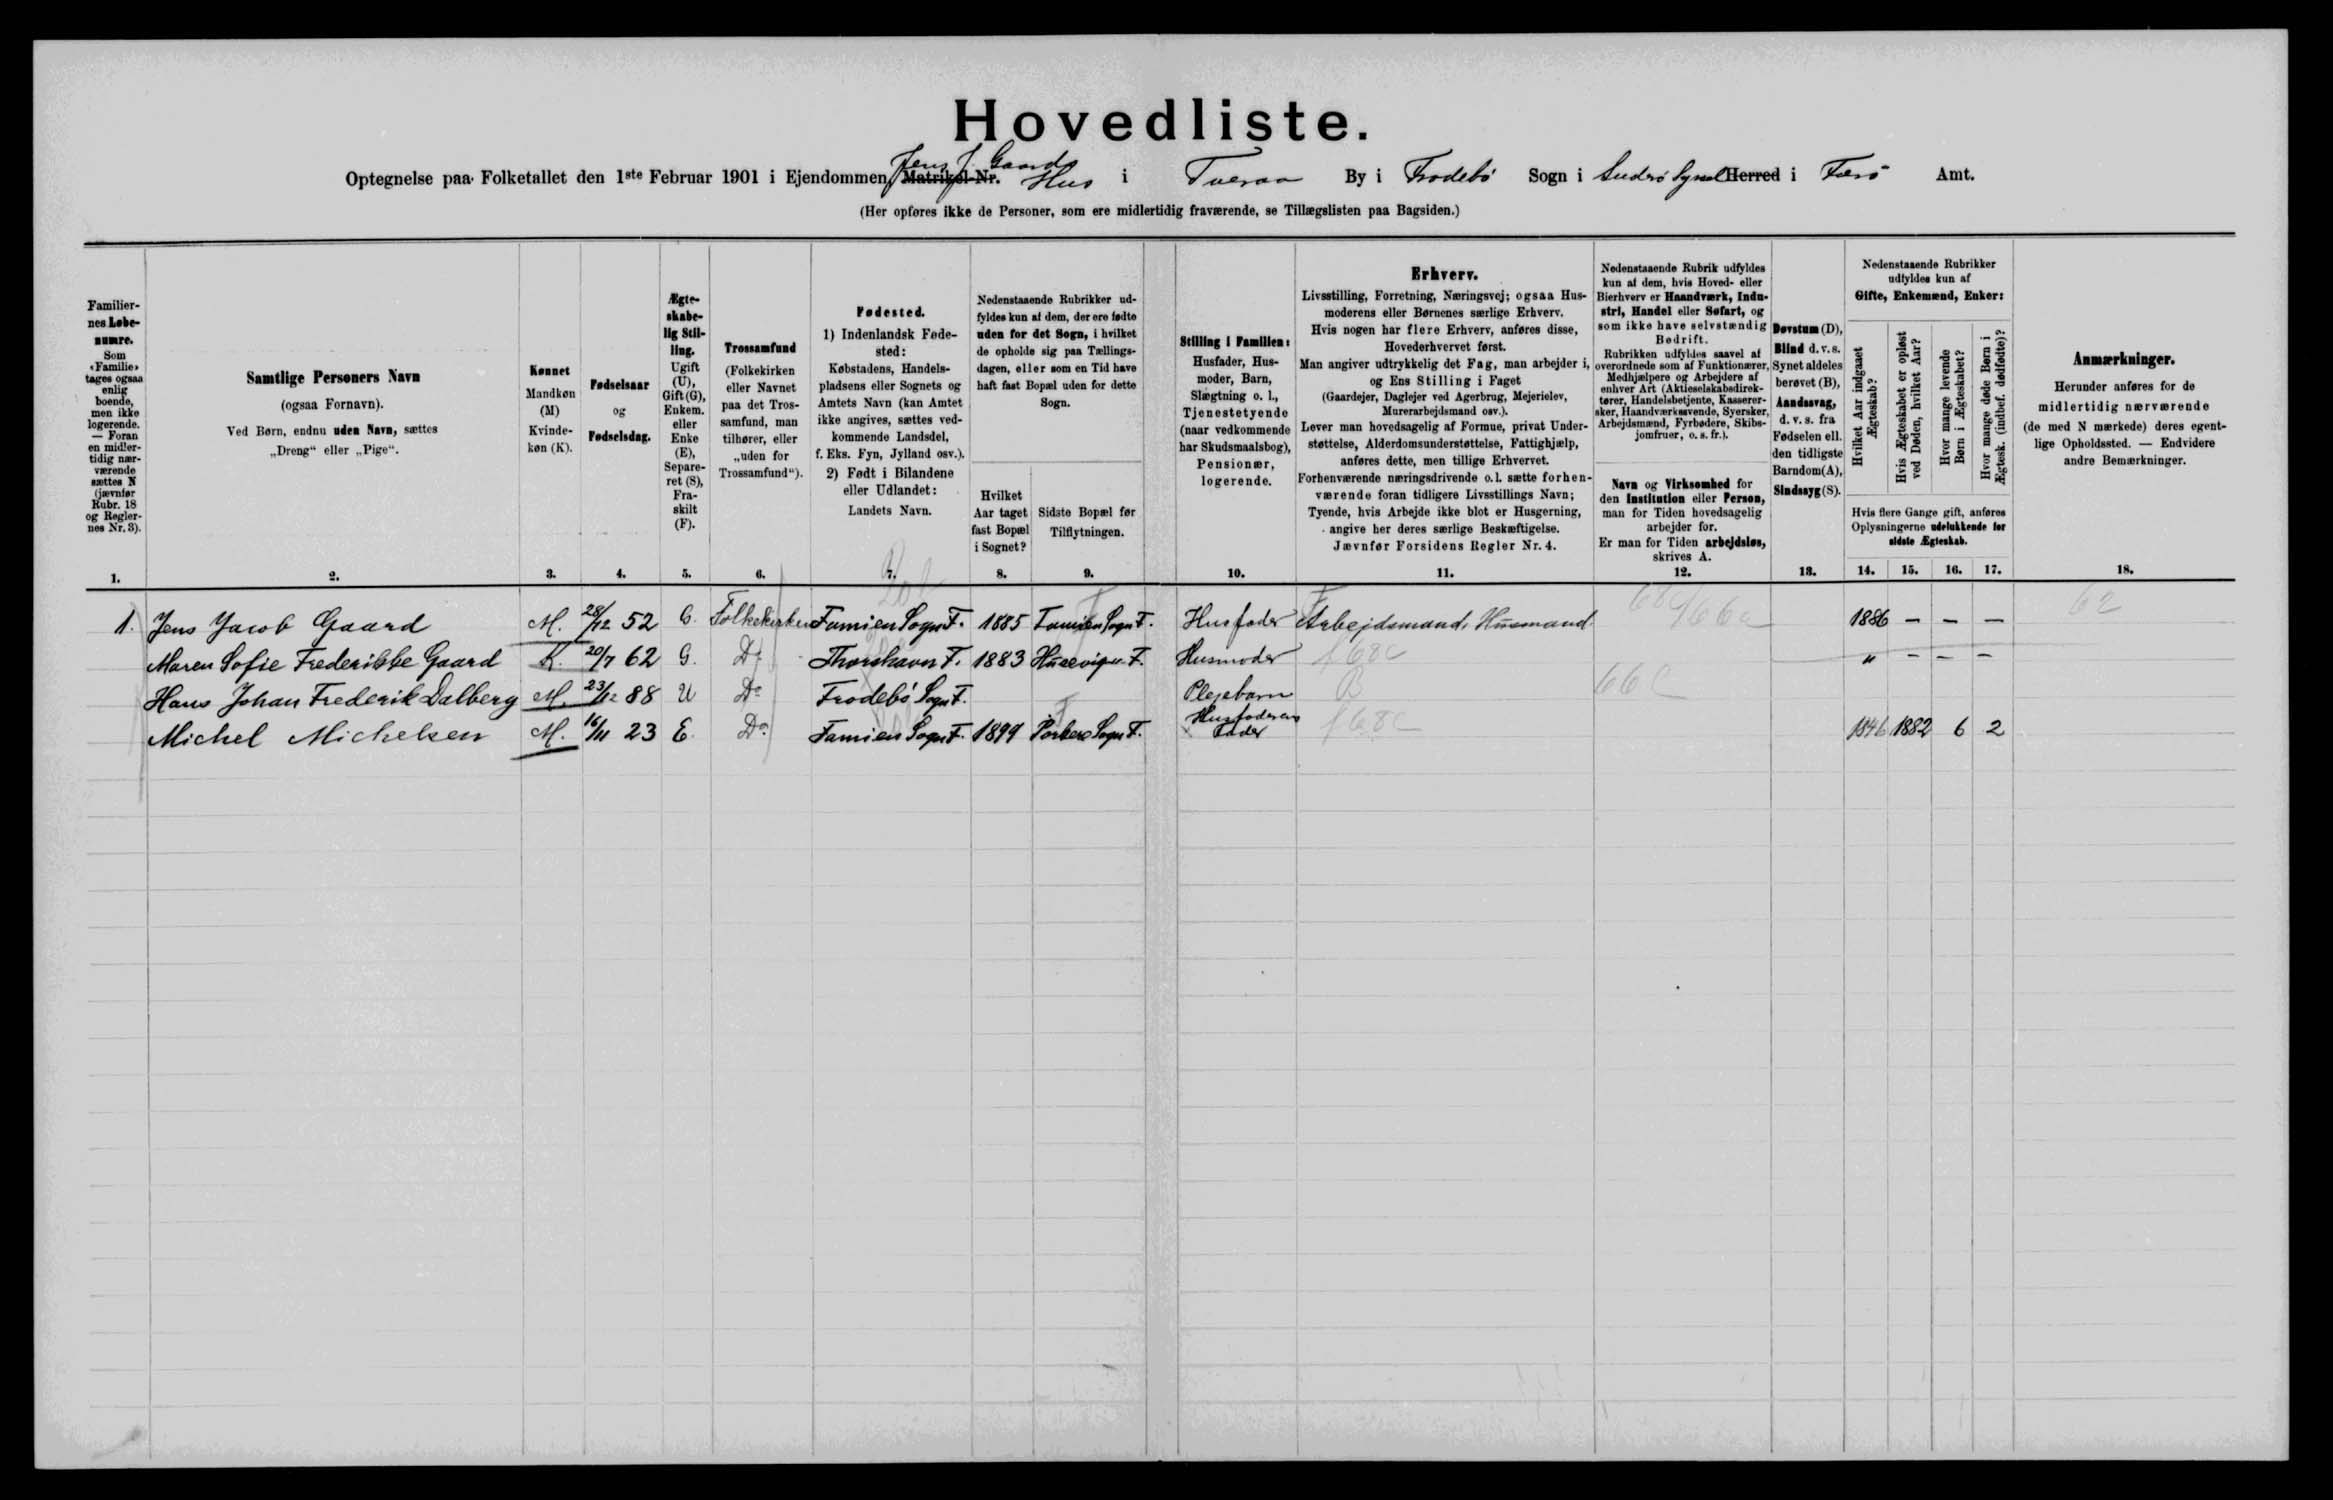 Hovedliste.
Optegnelse paa Folketallet den 1ste Februar 1901 i Ejendommen, Matrikel-Nr. Jens J. Gaards Hus i Tveraa By i Frodebø Sogn i Suderø Syssel Herred i Færø Amt.
(Her opføres ikke de Personer, som ere midlertidig fraværende, se Tillægslisten paa Bagsiden.)
Familier-
nes Løbe-
numre.
Som
«Familie»
tages ogsaa
enlig
boende,
men ikke
logerende.
— Foran
en midler-
tidig nær-
værende
sættes N
(jævnfør
Rubr. 18
og Regler-
nes Nr. 3).
1.
Samtlige Personers Navn
(ogsaa Fornavn).
Ved Børn, endnu uden Navn, sættes
„Dreng“ eller „Pige“.
2.
Kønnet
Mandkøn
(M)
Kvinde-
køn (K).
3.
Fødselsaar
og
Fødselsdag.
4.
Ægte-
skabe-
lig Stil-
ling.
Ugift
(U),
Gift (G),
Enkem.
eller
Enke
(E),
Separe-
ret (S),
Fra-
skilt
(F).
5.
Trossamfund
(Folkekirken
eller Navnet
paa det Tros-
samfund, man
tilhører, eller
„uden for
Trossamfund“).
6.
Fødested.
1) Indenlandsk Føde-
sted:
Købstadens, Handels-
pladsens eller Sognets og
Amtets Navn (kan Amtet
ikke angives, sættes ved-
kommende Landsdel,
f. Eks. Fyn, Jylland osv.).
2) Født i Bilandene
eller Udlandet:
Landets Navn.
7.
Nedenstaaende Rubrikker ud-
fyldes kun af dem, der ere fødte
uden for det Sogn, i hvilket
de opholde sig paa Tællings-
dagen, eller som en Tid have
haft fast Bopæl uden for dette
Sogn.
Hvilket
Aar taget
fast Bopæl
i Sognet?
8.
Sidste Bopæl før
Tilflytningen.
9.
Stilling i Familien:
Husfader, Hus-
moder, Barn,
Slægtning o. l.,
Tjenestetyende
(naar vedkommende
har Skudsmaalsbog),
Pensionær,
logerende.
10.
Erhverv.
Livsstilling, Forretning, Næringsvej; ogsaa Hus-
moderens eller Børnenes særlige Erhverv.
Hvis nogen har flere Erhverv, anføres disse,
Hovederhvervet først.
Man angiver udtrykkelig det Fag, man arbejder i,
og Ens Stilling i Faget
(Gaardejer, Daglejer ved Agerbrug, Mejerielev,
Murerarbejdsmand osv.).
Lever man hovedsagelig af Formue, privat Under-
støttelse, Alderdomsunderstøttelse, Fattighjælp,
anføres dette, men tillige Erhvervet.
Forhenværende næringsdrivende o. l. sætte forhen-
værende foran tidligere Livsstillings Navn;
Tyende, hvis Arbejde ikke blot er Husgerning,
angive her deres særlige Beskæftigelse.
Jævnfør Forsidens Regler Nr. 4.
11.
Nedenstaaende Rubrik udfyldes
kun af dem, hvis Hoved- eller
Bierhverv er Haandværk, Indu-
stri, Handel eller Søfart, og
som ikke have selvstændig
Bedrift.
Rubrikken udfyldes saavel af
overordnede som af Funktionærer,
Medhjælpere og Arbejdere af
enhver Art (Aktieselskabsdirek-
tører, Handelsbetjente, Kasserer-
sker, Haandværkssvende, Syersker,
Arbejdsmænd, Fyrbødere, Skibs-
jomfruer, o. s. fr.).
Navn og Virksomhed for
den Institution eller Person,
man for Tiden hovedsagelig
arbejder for.
Er man for Tiden arbejdsløs,
skrives A.
12.
Døvstum (D),
Blind d. v. s.
Synet aldeles
berøvet (B),
Aandssvag,
d. v. s. fra
Fødselen ell.
den tidligste
Barndom (A),
Sindssyg (S).
13.
Nedenstaaende Rubrikker
udfyldes kun af
Gifte, Enkemænd, Enker:
Hvilket Aar indgaaet
Ægteskab?
Hvis Ægteskabet er opløst
ved Døden, hvilket Aar?
Hvor mange levende
Børn i Ægteskabet?
Hvor mange døde Børn i
Ægtesk. (indbef. dødfødte)?
Hvis flere Gange gift, anføres
Oplysningerne udelukkende for
sidste Ægteskab.
14. 15. 16. 17.
Anmærkninger.
Herunder anføres for de
midlertidig nærværende
(de med N mærkede) deres egent-
lige Opholdssted. — Endvidere
andre Bemærkninger.
18.
1. Jens Jacob Gaard M. 28/12 52 G. Folkekirken Famien Sogn F. 1885 Famien Sogn F. Husfader Arbejdsmand, Husmand 68c/66a 1886 — — — 62
Maren Sofie Frederikke Gaard K. 20/7 62 G. Do Thorshavn F. 1883 Husevig F. Husmoder f 68c " — — —
Hans Johan Frederik Dalberg M. 23/12 88 U Do Frodebø Sogn F. Plejebarn B 66c
Michel Michelsen M. 16/11 23 E. Do Famien Sogn F. 1899 Porkere Sogn F. Husfaderens Fader f 68c 1846 1882 6 2